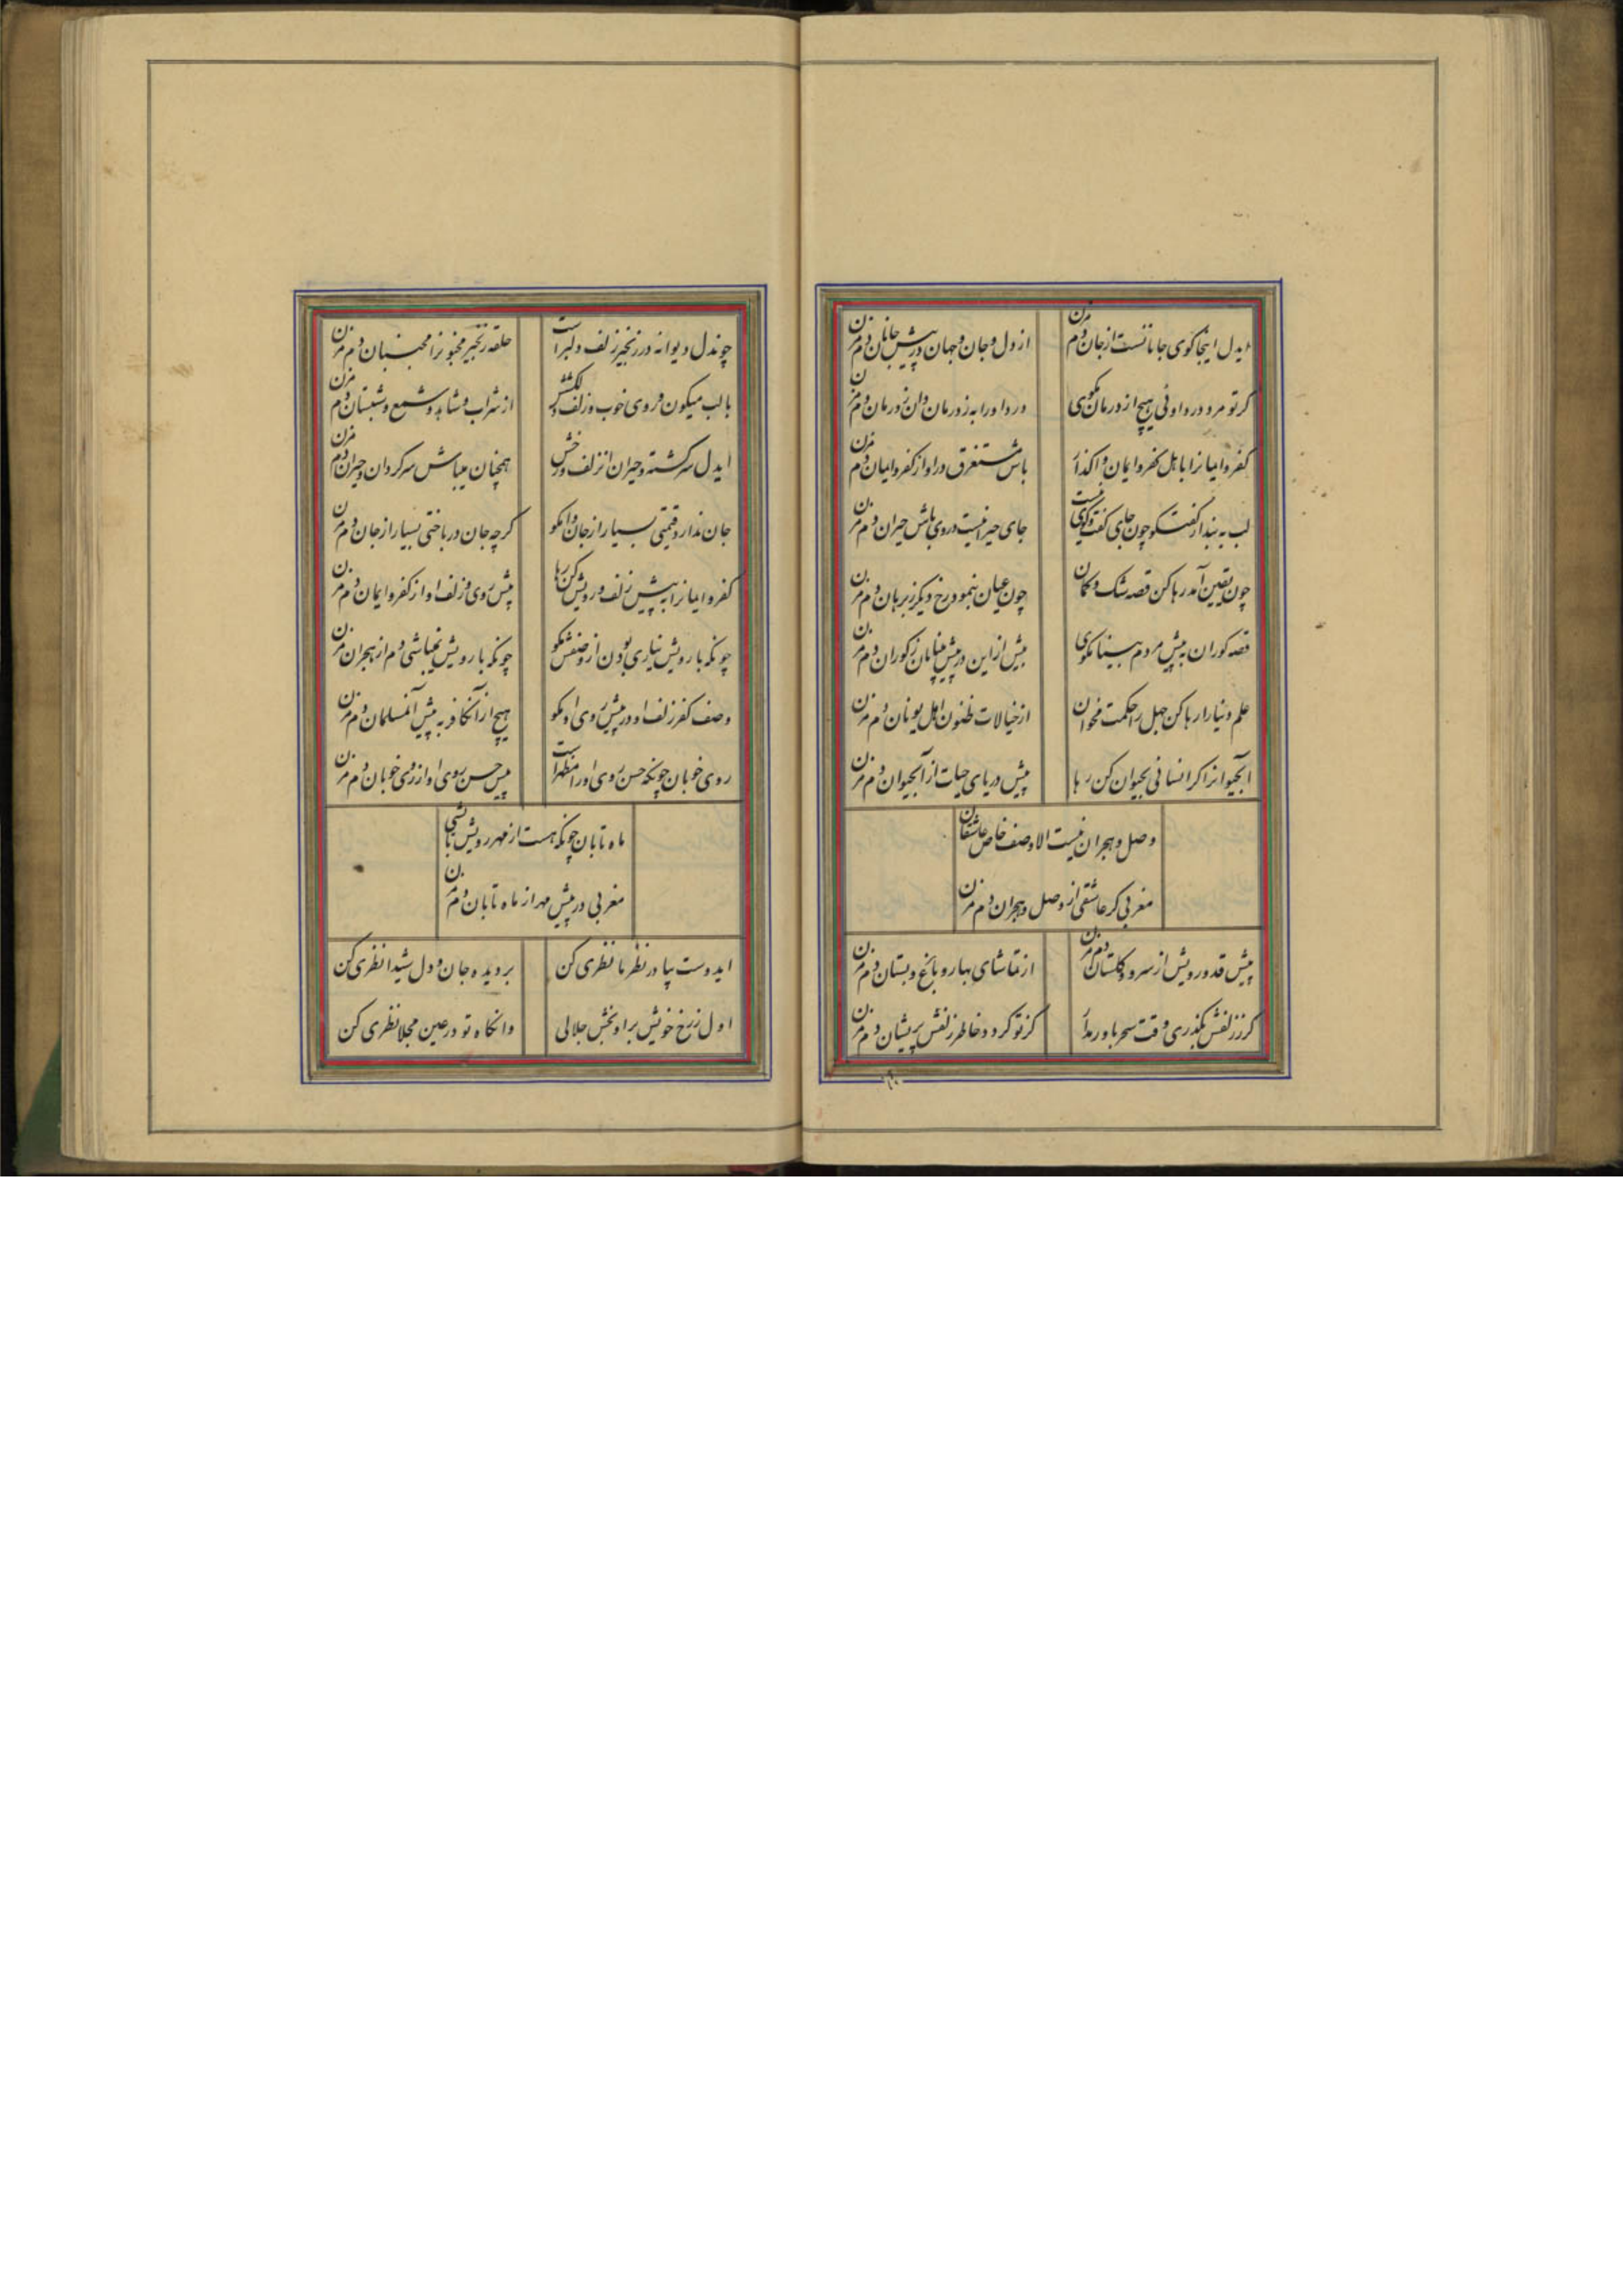 ایدل اینجا کوی جانانست از جان دم مزن
از دل و جان و جهان در پیش جانان دم مزن
کر تو مرد درد اوئی هیچ از درمان مکوی
درد او را به ز درمان دان ز درمان دم مزن
کفر و ایمانرا باهل کفر و ایمان واکذار
باش مستغرق در او از کفر و ایمان دم مزن
لب به بند از کفتکو چون جای کفت و کوی نیست
جای حیرانیست در وی باش حیران دم مزن
چون یقین آمد رها کن قصه شک و کمان
چون عیان بنمود رخ دیکر ز برهان دم مزن
قصه کوران به پیش مردم بینا مکوی
بیش از این در پیش بینایان ز کوران دم مزن
علم دنیا را رها کن جهل را حکمت مخوان
از خیالات ظنون اهل یونان دم مزن
آبحیوانرا کر انسانی بحیوان کن رها
پیش دریای حیات از آبحیوان دم مزن
وصل و هجران نیست الا وصف خاص عاشقان
مغربی کر عاشقی از وصل و هجران دم مزن
پیش قد و رویش از سرو و کلستان دم مزن
از تماشای بهار و باغ و بستان دم مزن
کر ز زلفش بکذری وقت سحر باور مدار
کر تو کرود خاطر زلفش پریشان دم مزن
چوندل دیوانه در زنجیر زلف دلبر است
حلقه زنجیر مجنونرا مجنبان دم مزن
با لب میکون و روی خوب و زلف دلکشش
از شراب و شاهد و شمع و شبستان دم مزن
ایدل سرکشته و حیران از زلف و رخش
همچنان میباش سرکردان و حیران دم مزن
جان ندارد قیمتی بسیار از جان وا مکو
کرچه جان درباختی بسیار از جان دم مزن
کفر و ایمانرا به پیش زلف و رویش کن رها
پیش روی و زلف او از کفر و ایمان دم مزن
چونکه با رویش نیاری بودن از وصفش مکو
چونکه با رویش نمیباشی دم از هجران مزن
وصف کفر زلف او در پیش روی او مکو
هیچ از آنکافر به پیش آنمسلمان دم مزن
روی خوبان چونکه حسن روی او را مظهر است
پیش حسن روی او از روی خوبان دم مزن
ماه تابان چونکه هست از مهر رویش تابشی
مغربی در پیش مهر از ماه تابان دم مزن
ایدوست بیا در نظر ما نظری کن
بر دیده جان و دل شیدا نظری کن
اول ز رخ خویش براو بخش جلالی
وانکاه تو در عین مجلا نظری کن